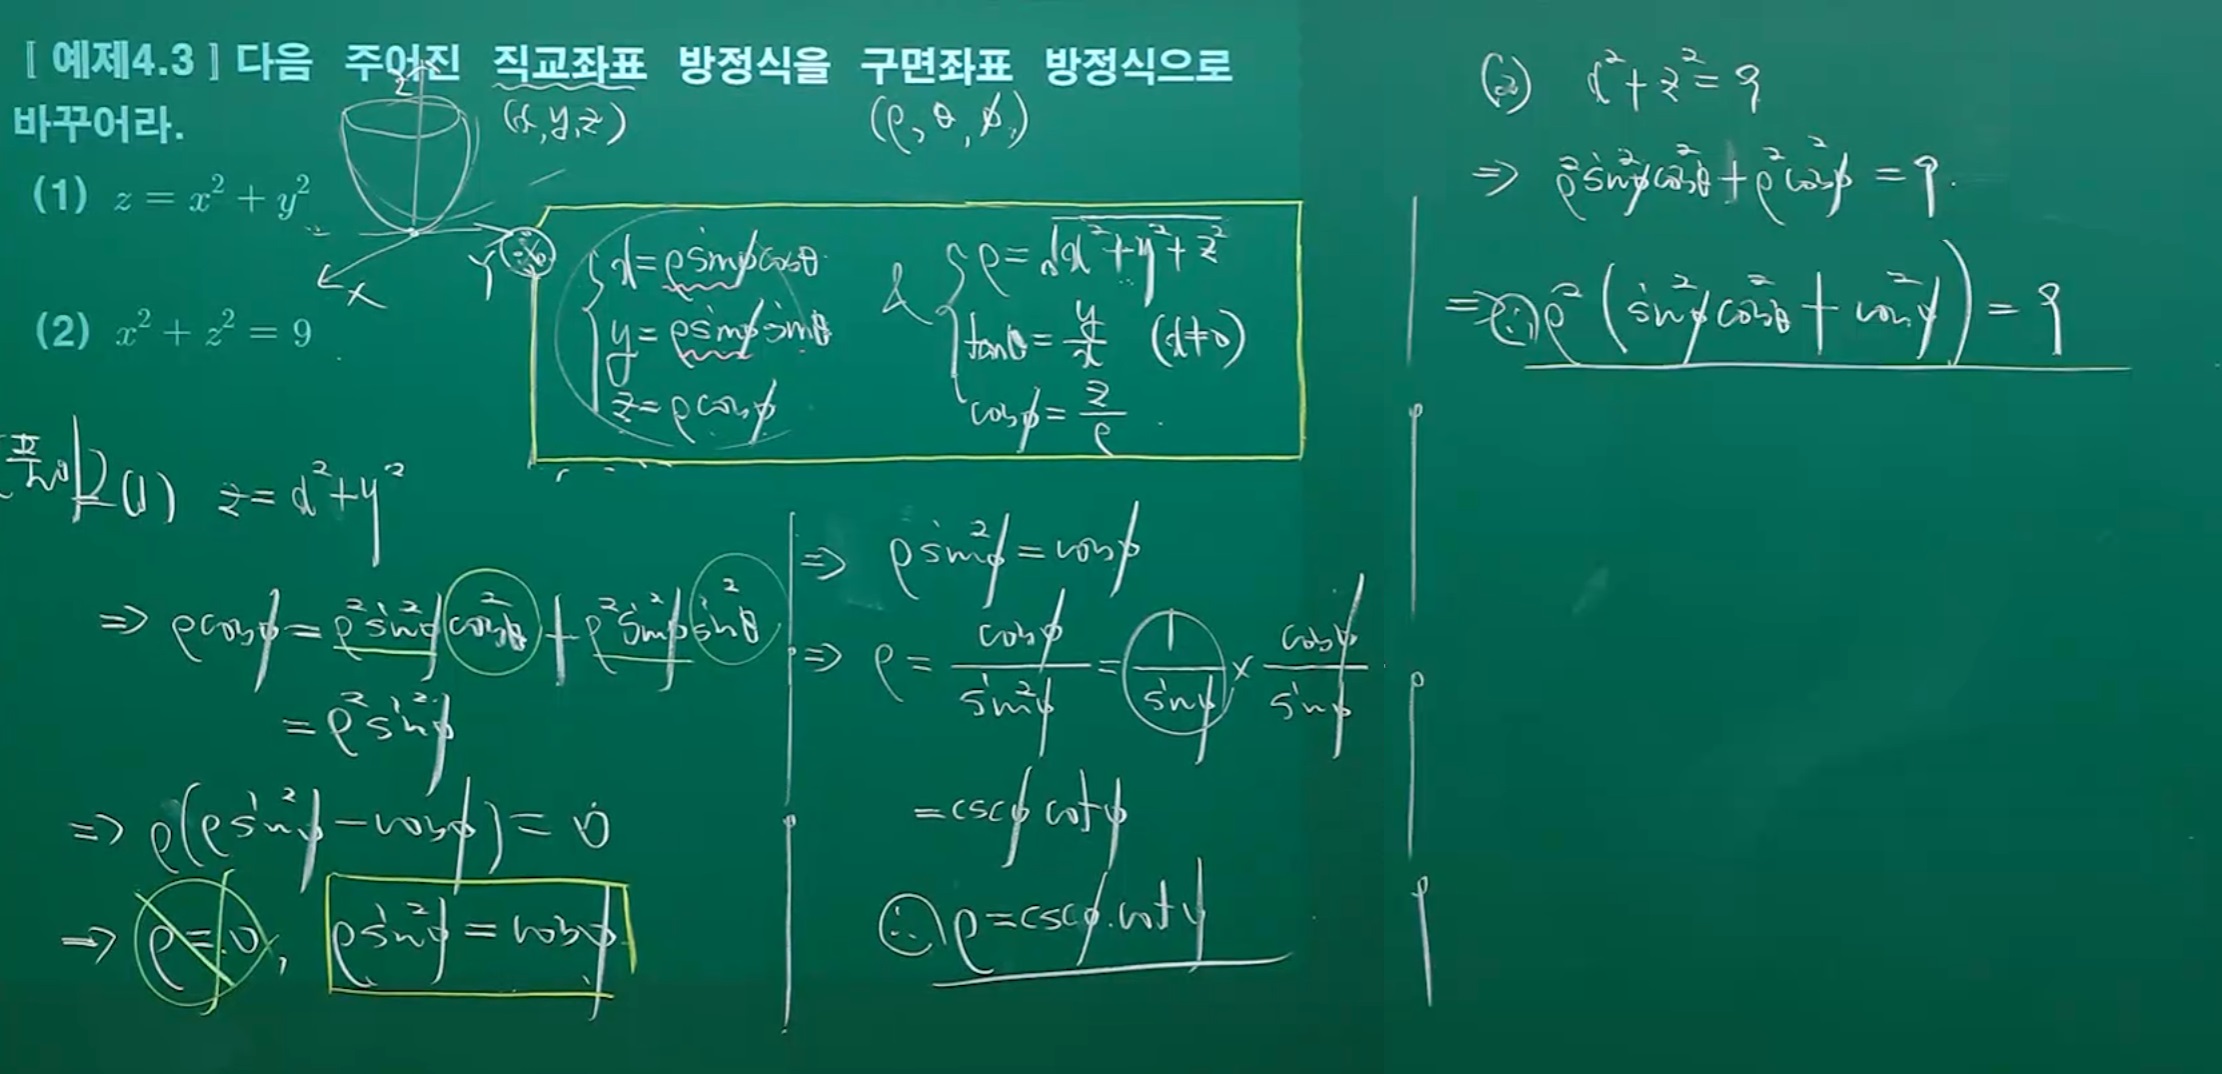 [ 예제4.3 ] 다음 주어진 직교좌표 방정식을 구면좌표 방정식으로
바꾸어라.
(x, y, z)
(ρ, θ, φ)
(1) z = x² + y²
(2) x² + z² = 9
Z
X
Y
x = ρsinφcosθ
y = ρsinφsinθ
z = ρcosφ
&
ρ = √x² + y² + z²
tanθ = y/x (x≠0)
cosφ = z/ρ
풀이) (1) z = x² + y²
⇒ ρcosφ = ρ²sin²φcos²θ + ρ²sin²φsin²θ
= ρ²sin²φ
⇒ ρ(ρsin²φ - cosφ) = 0
⇒ ρ = 0, ρsin²φ = cosφ
⇒ ρsin²φ = cosφ
⇒ ρ = cosφ/sin²φ = 1/sinφ × cosφ/sinφ
= cscφ cotφ
∴ ρ = cscφ·cotφ
(2) x² + z² = 9
⇒ ρ²sin²φcos²θ + ρ²cos²φ = 9.
⇒ ∴ ρ²(sin²φcos²θ + cos²φ) = 9